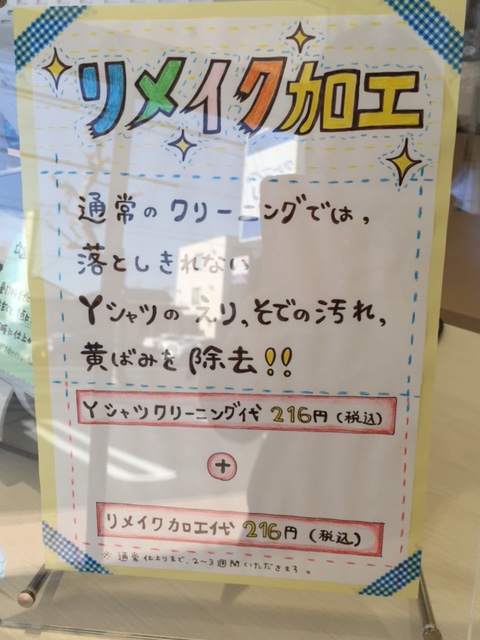 リメイク加工
通常のクリーニングでは,
落としきれない
Yシャツの えり,そでの汚れ,
黄ばみを 除去!!
Yシャツクリーニング代 216円(税込)
+
リメイク加工代 216円(税込)
※ 通常仕上りまで、2~3週間いただきます。